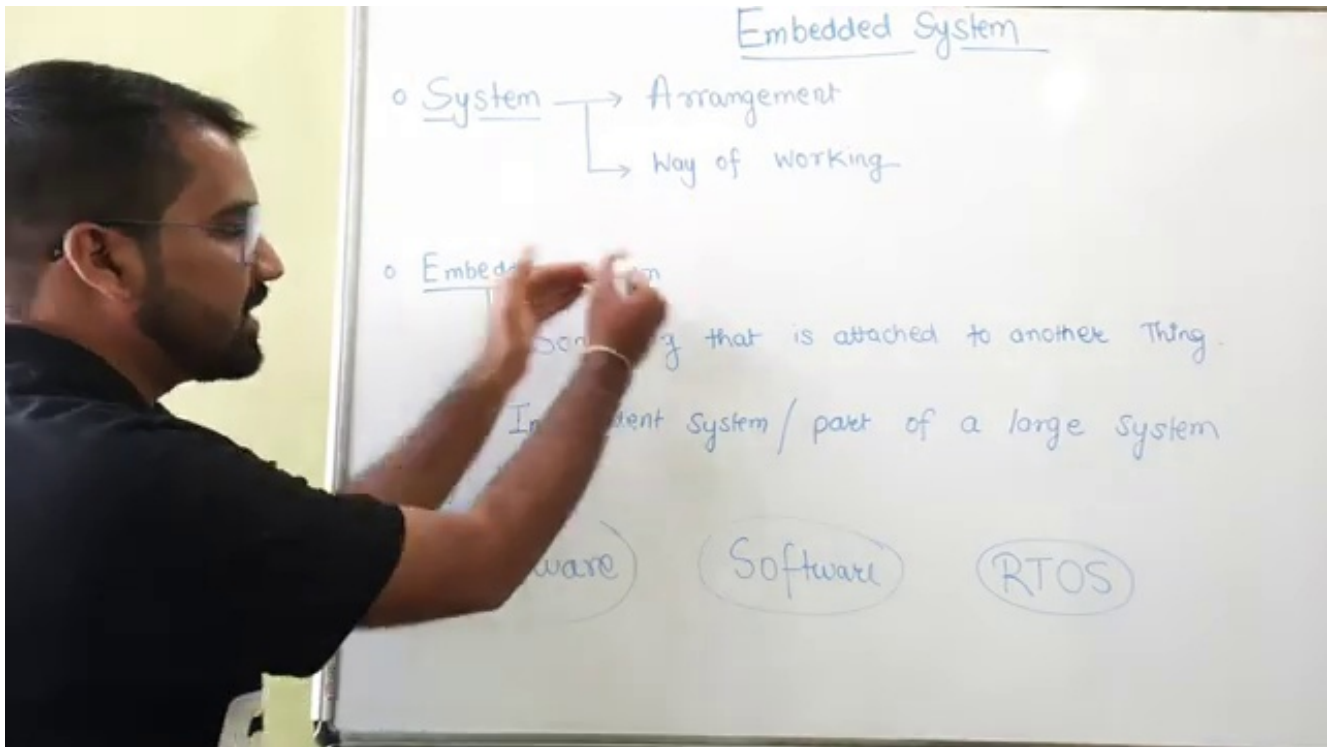 Embedded System
System → Arrangement
→ Way of working
Embedd
that is attached to another Thing.
In dent system / part of a large system
ware Software RTOS